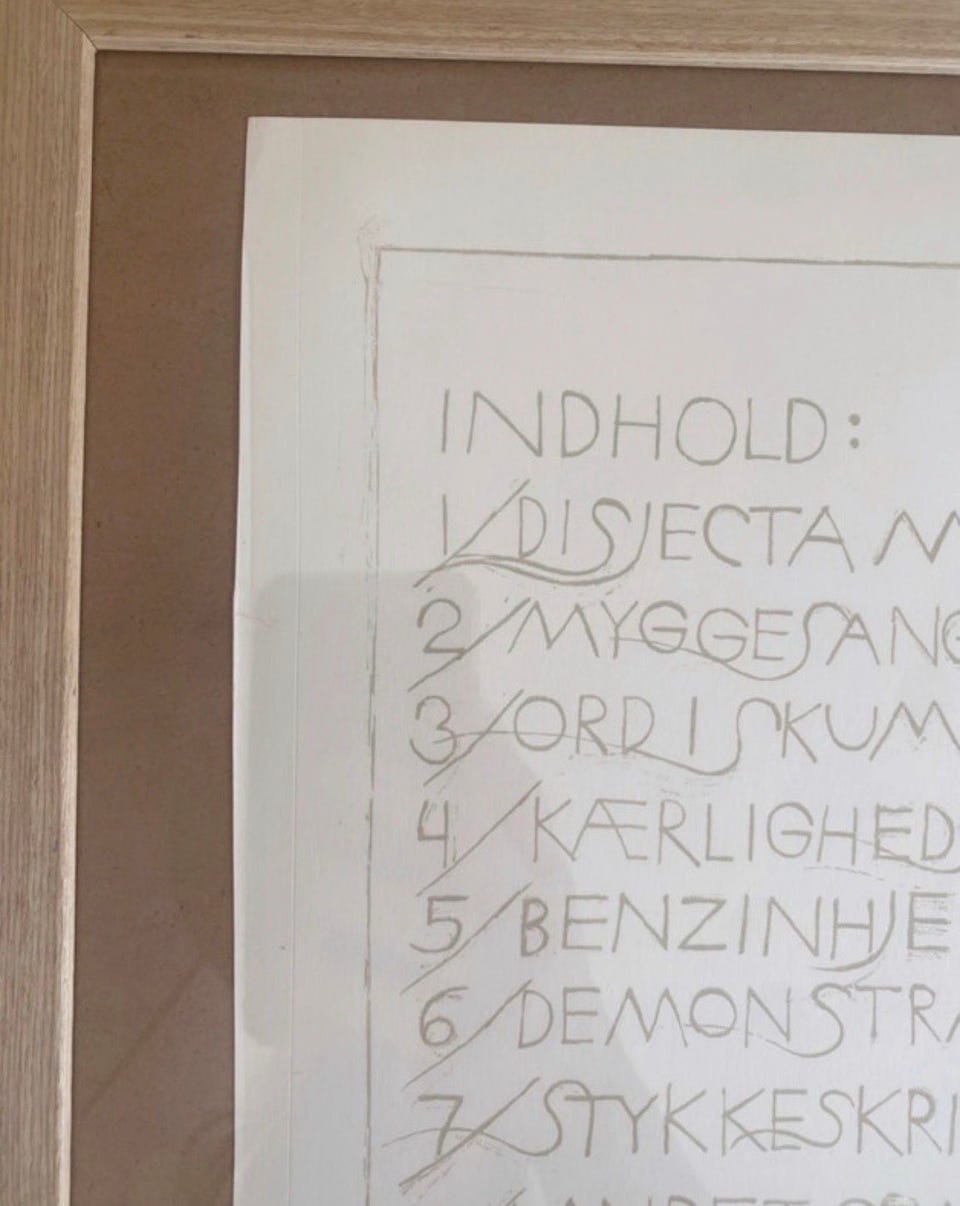 INDHOLD:
1/DISJECTA M
2/MYGGESANG
3/ORD I SKUM
4/KÆRLIGHEDS
5/BENZINHJE
6/DEMONSTRA
7/STYKKESKRI